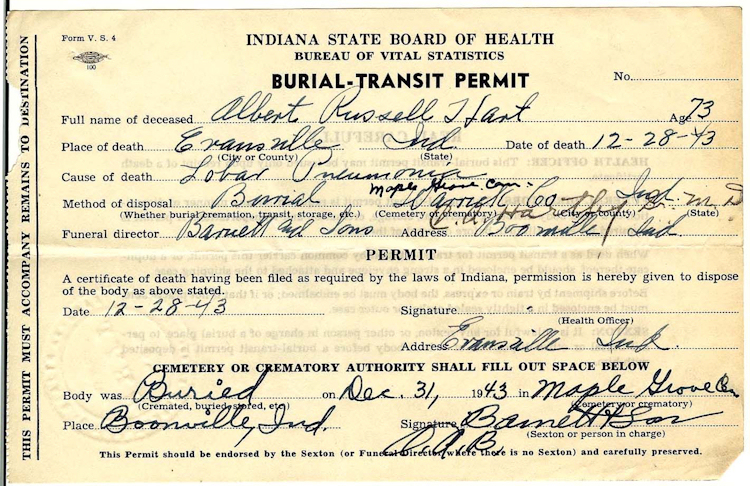 Form V. S. 4
100
INDIANA STATE BOARD OF HEALTH
BUREAU OF VITAL STATISTICS
BURIAL-TRANSIT PERMIT
No.
Full name of deceased Albert Russell Hart Age 73
Place of death Evansville Ind Date of death 12-28-43
(City or County) (State)
Cause of death Lobar Pneumonia
Maple Grove Cem.
Method of disposal Burial Warrick Co Ind.
(Whether burial cremation, transit, storage, etc.) (Cemetery or crematory) (City or county) (State)
M. D.
Funeral director Barnett and Sons Address Boonville Ind
PERMIT
A certificate of death having been filed as required by the laws of Indiana, permission is hereby given to dispose
of the body as above stated.
Date 12-28-43 Signature
(Health Officer)
Address Evansville Ind.
CEMETERY OR CREMATORY AUTHORITY SHALL FILL OUT SPACE BELOW
Body was Buried on Dec. 31, 1943 in Maple Grove Cem
(Cremated, buried, stored, etc.) (Cemetery or crematory)
Place Boonville, Ind. Signature Barnett & Son
(Sexton or person in charge)
This Permit should be endorsed by the Sexton (or Funeral Director where there is no Sexton) and carefully preserved.
THIS PERMIT MUST ACCOMPANY REMAINS TO DESTINATION